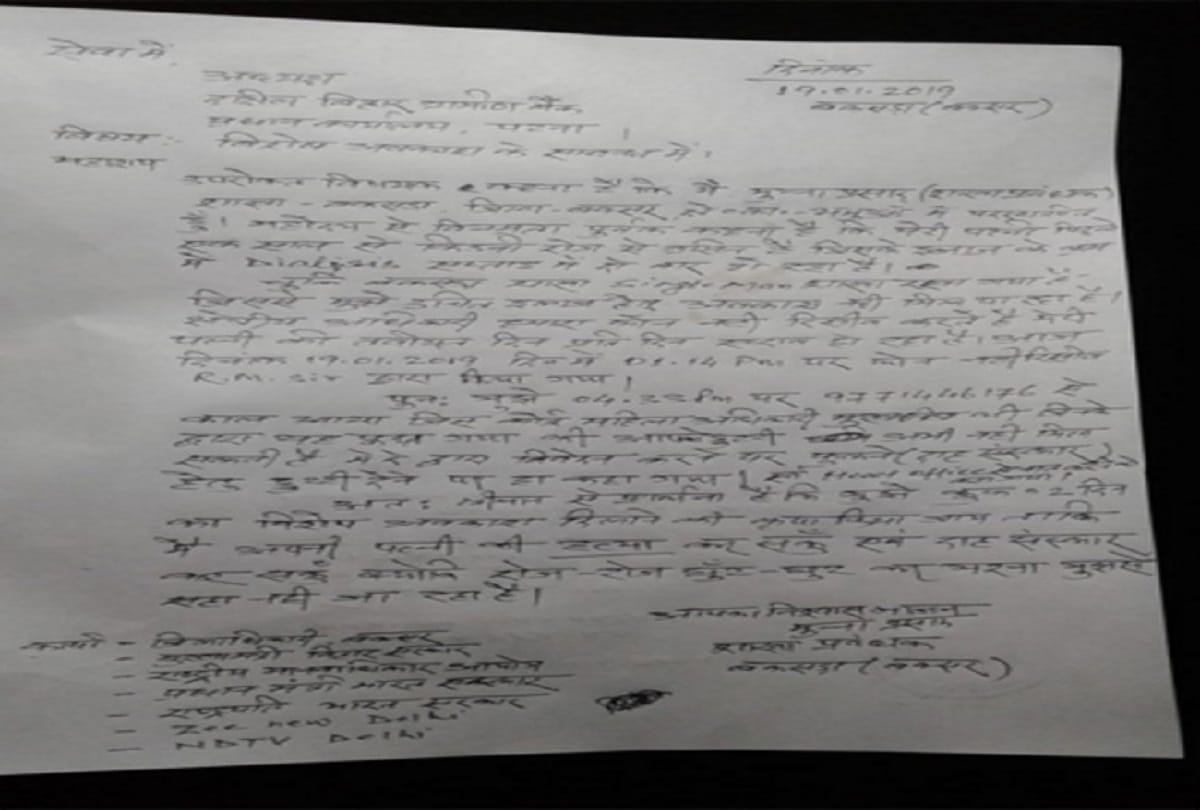 सेवा में,
अध्यक्ष
दिनांक
19.01.2019
दक्षिण बिहार ग्रामीण बैंक
बकसड़ा (बक्सर)
प्रधान कार्यालय, पटना।
विषय :- विशेष अवकाश के सम्बन्ध में।
महाशय
उपरोक्त विषयक कहना है कि मैं मुन्ना प्रसाद (शाखा प्रबंधक)
शाखा - बकसड़ा, जिला - बक्सर में पदस्थापित
हूँ। महोदय से विनम्रता पूर्वक कहना है कि मेरी पत्नी पिछले
एक साल से किडनी रोग से ग्रसित है जिसके इलाज के क्रम
में Dialysis सप्ताह में दो बार हो रहा है।
चूंकि बकसड़ा शाखा Single Man शाखा रहता गया है
जिससे मुझे उचित इलाज हेतु अवकाश भी मिल पा रहा है।
क्षेत्रीय अधिकारी हमारा फोन नहीं रिसीव करते हैं मेरी
पत्नी की तबीयत दिन प्रति दिन खराब हो रहा है। आज
दिनांक 19.01.2019 दिन में 01.14 Pm पर फोन नहीं रिसीव
R.M. Sir द्वारा किया गया।
पुनः मुझे 04:22 Pm पर 9771446176 से
काल आया फिर कोई महिला अधिकारी की जिनके
द्वारा कहा गया की आपको छुट्टी अभी नहीं मिल
सकती है मेरे द्वारा निवेदन करने पर (दाह संस्कार)
हेतु छुट्टी देने पर हां कहा गया। Head office
अतः श्रीमान से प्रार्थना है कि मुझे 02 दिन
का विशेष अवकाश दिलाने की कृपा किया जाय ताकि
मैं अपनी पत्नी की हत्या कर सकूँ एवं दाह संस्कार
कर सकूँ क्योंकि रोज-रोज घूँट-घुट का मरना मुझसे
सहा नहीं जा रहा है।
आपका विश्वास भाजन
मुन्ना प्रसाद
शाखा प्रबंधक
बकसड़ा (बक्सर)
कापी - जिलाधिकारी बक्सर
- मुख्यमंत्री बिहार सरकार
- राष्ट्रीय मानवाधिकार आयोग
- प्रधान मंत्री भारत सरकार
- राष्ट्रपति भारत सरकार
- Zee new Delhi
- NDTV Delhi